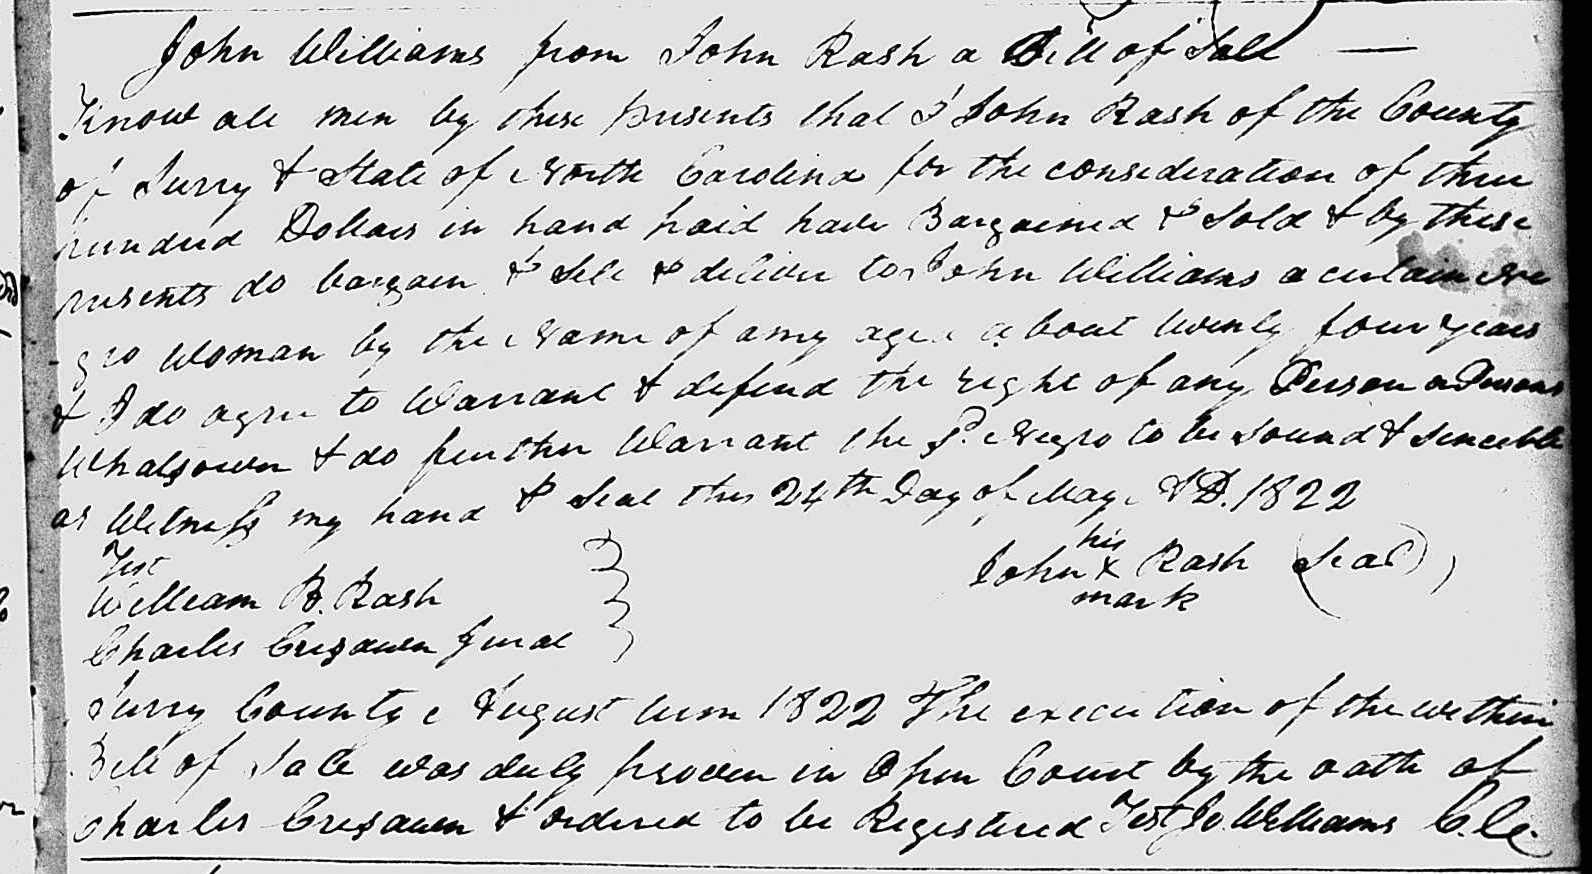 John Williams from John Rash a Bill of Sale —
Know all men by these presents that I John Rash of the County
of Surry & State of North Carolina for the consideration of three
hundred Dollars in hand paid have Bargained & Sold & by these
presents do bargain & Sell & deliver to John Williams a certain Ne
gro Woman by the Name of amy aged about twenty four years
& I do agree to Warrant & defend the right of any Person or Persons
Whatsoever & do further Warrant the sd. Negro to be sound & senceble
as Witness my hand & Seal this 24th Day of May AD. 1822
his
John x Rash (Seal)
mark
Test
William B. Rash
Charles Jurat
Surry County August term 1822 The execution of the within
Bill of Sale was duly proven in Open Court by the oath of
Charles & ordered to be Registered Test Jo. Williams